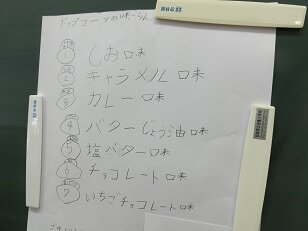 ポップコーンの味
① しお味
② キャラメル味
③ カレー味
④ バターじょう油味
⑤ 塩バター味
⑥ チョコレート味
⑦ いちごチョコレート味